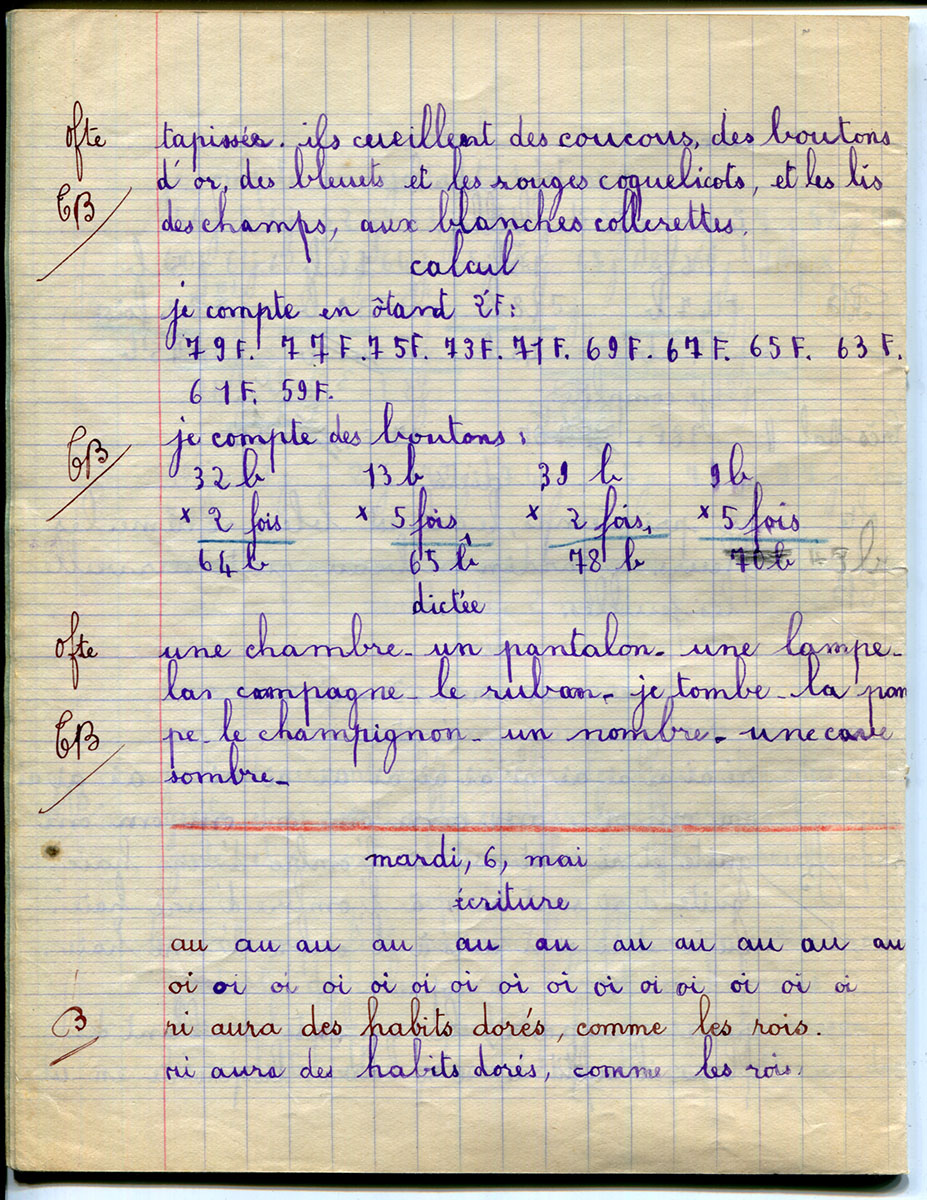 0fte tapissée. ils cueillent des coucous, des boutons
d'or, des bleuets et les rouges coquelicots, et les lis
TB des champs, aux blanches collerettes.
calcul
je compte en ôtant 2F:
79F. 77F. 75F. 73F. 71F. 69F. 67F. 65F. 63F.
61F. 59F.
TB je compte des boutons:
32 b 13 b 39 b 9 b
x 2 fois x 5 fois x 2 fois, x 5 fois
64 b 65 b 78 b 45 b
dictée
0fte une chambre - un pantalon - une lampe -
la campagne - le ruban - je tombe - la pom
TB pe - le champignon - un nombre - une cave
sombre -
mardi, 6, mai
écriture
au au au au au au au au au au au
oi oi oi oi oi oi oi oi oi oi oi oi oi oi oi oi
B ri aura des habits dorés, comme les rois.
ri aura des habits dorés, comme les rois.